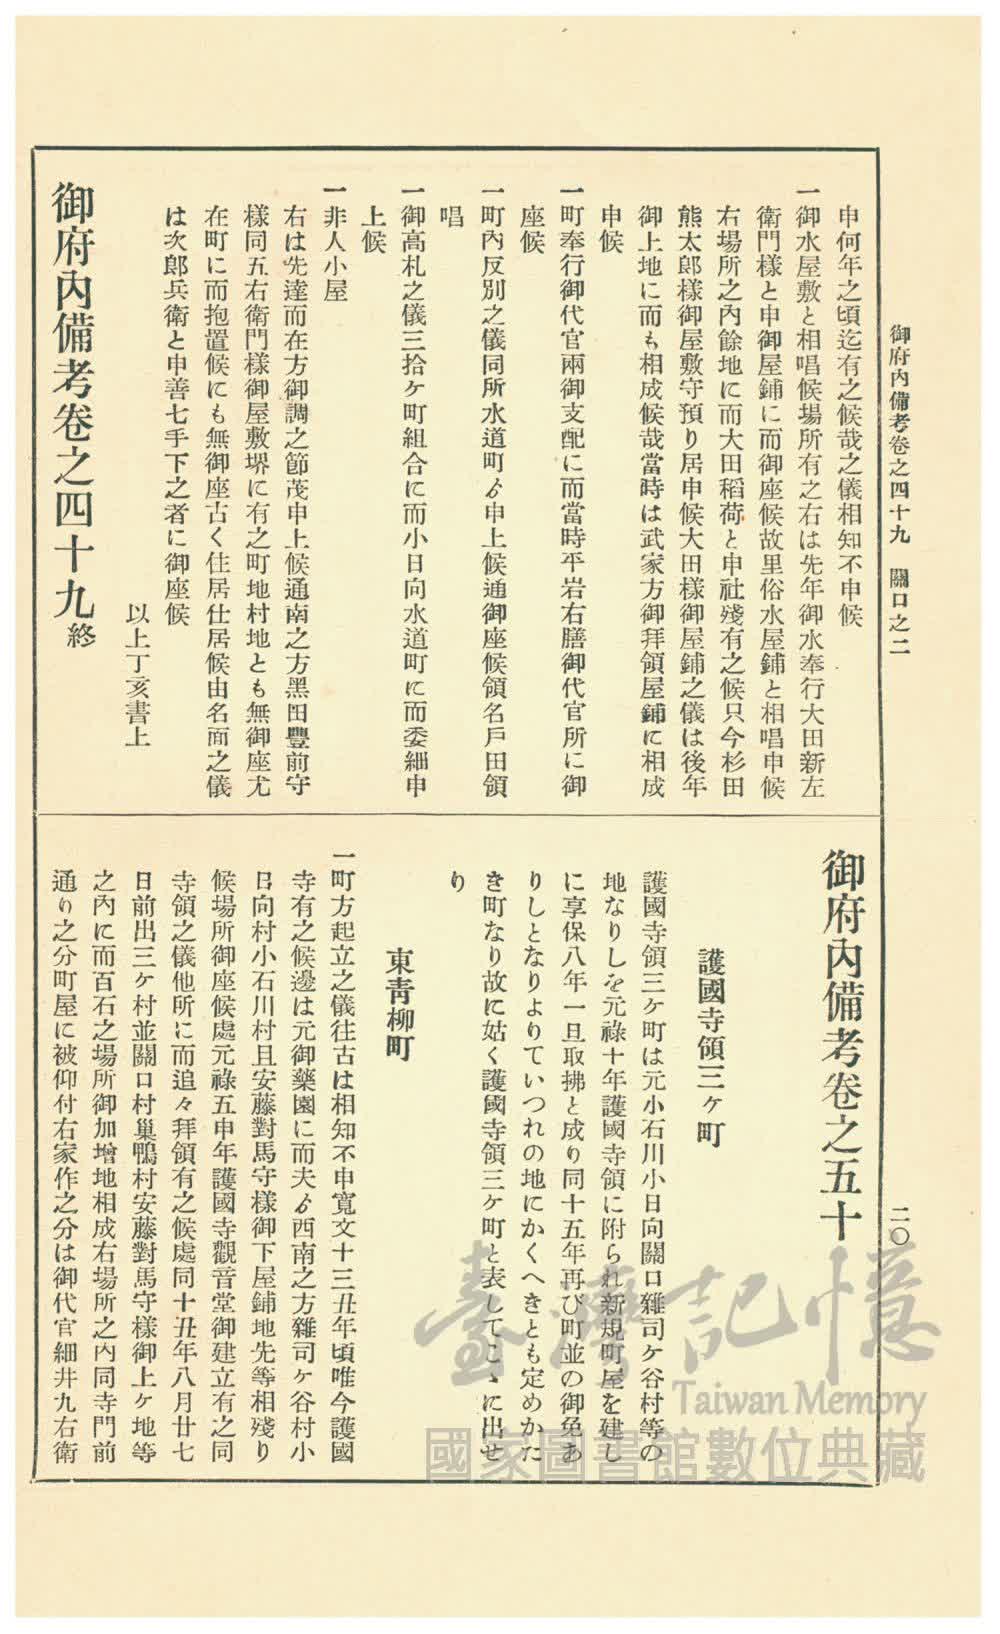 御府內備考卷之四十九　關口之二
二〇
申何年之頃迄有之候哉之儀相知不申候
一御水屋敷と相唱候場所有之右は先年御水奉行大田新左
衛門樣と申御屋鋪に而御座候故里俗水屋鋪と相唱申候
右場所之內餘地に而大田稻荷と申社殘有之候只今杉田
熊太郎樣御屋敷守預り居申候大田樣御屋鋪之儀は後年
御上地に而も相成候哉當時は武家方御拜領屋鋪に相成
申候
一町奉行御代官兩御支配に而當時平岩右膳御代官所に御
座候
一町內反別之儀同所水道町ゟ申上候通御座候領名戶田領
唱
一御高札之儀三拾ケ町組合に而小日向水道町に而委細申
上候
一非人小屋
右は先達而在方御調之節茂申上候通南之方黑田豐前守
樣同五右衛門樣御屋敷堺に有之町地村地とも無御座尤
在町に而抱置候にも無御座古く住居仕居候由名面之儀
は次郎兵衛と申善七手下之者に御座候
以上丁亥書上
御府內備考卷之四十九終
御府內備考卷之五十
護國寺領三ケ町
護國寺領三ケ町は元小石川小日向關口雜司ケ谷村等の
地なりしを元祿十年護國寺領に附られ新規町屋を建し
に享保八年一旦取拂と成り同十五年再び町並の御免あ
りしとなりよりていつれの地にかくへきとも定めかた
き町なり故に姑く護國寺領三ケ町と表してこゝに出せ
り
東靑柳町
一町方起立之儀往古は相知不申寬文十三丑年頃唯今護國
寺有之候邊は元御藥園に而夫ゟ西南之方雜司ケ谷村小
日向村小石川村且安藤對馬守樣御下屋鋪地先等相殘り
候場所御座候處元祿五申年護國寺觀音堂御建立有之同
寺領之儀他所に而追々拜領有之候處同十丑年八月廿七
日前出三ケ村並關口村巢鴨村安藤對馬守樣御上ケ地等
之內に而百石之場所御加增地相成右場所之內同寺門前
通り之分町屋に被仰付右家作之分は御代官細井九右衛
臺灣記憶
Taiwan Memory
國家圖書館數位典藏